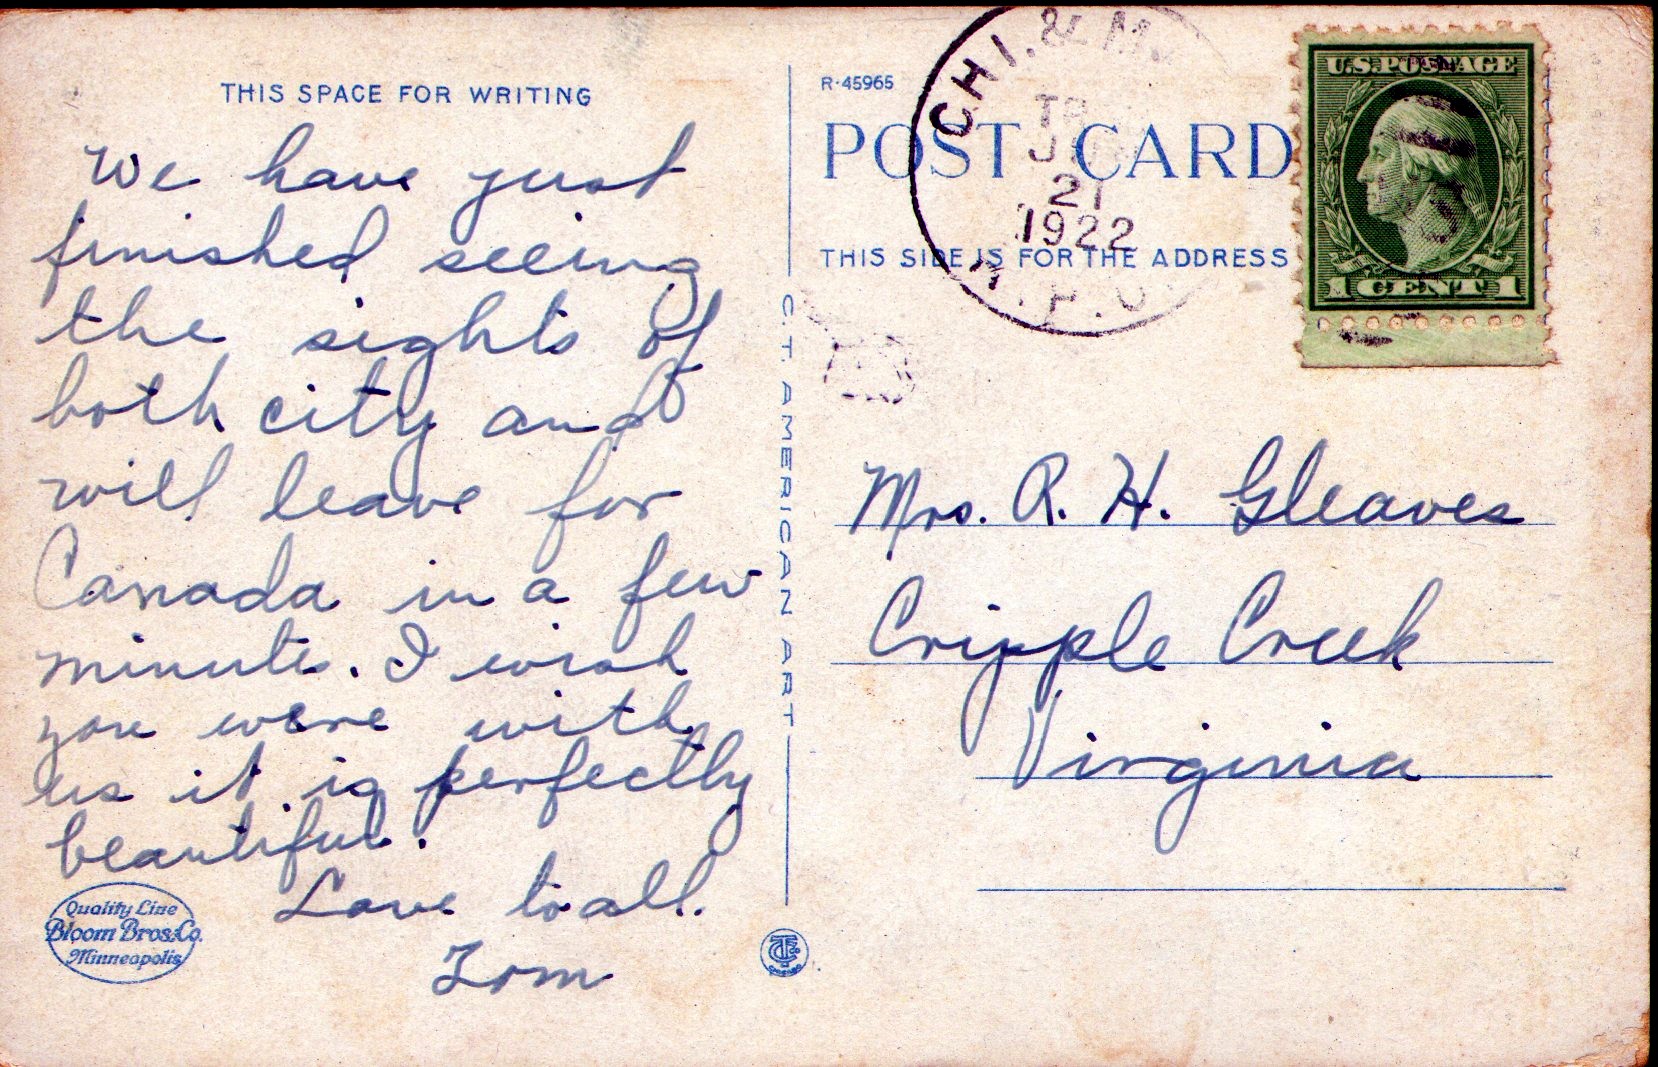 THIS SPACE FOR WRITING
We have just
finished seeing
the sights of
both city and
will leave for
Canada in a few
minute. I wish
you were with
us it is perfectly
beautiful.
Love to all.
Tom
Quality Line
Bloom Bros. Co.
Minneapolis
C. T. AMERICAN ART
CHICAGO
R-45965
POST CARD
THIS SIDE IS FOR THE ADDRESS
CHI. & M
TR
JUN
21
1922
R.P.O.
U.S. POSTAGE
1 CENT 1
Mrs. R. H. Gleaves
Cripple Creek
Virginia